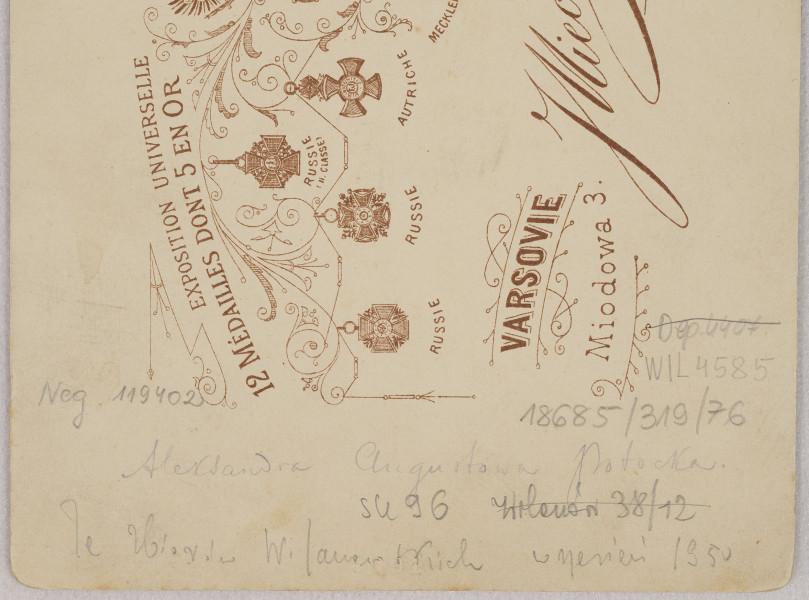 MECKLEN
AUTRICHE
RUSSIE
(II. CLASSE)
RUSSIE
RUSSIE
EXPOSITION UNIVERSELLE
12 MEDAILLES DONT 5 EN OR
Miec
VARSOVIE
Miodowa 3.
Dep. 4407.
WIL 4585
Neg. 119402
18685/319/76
Aleksandra Augustowa Potocka.
38/12
Ze Wilanowskich 1950